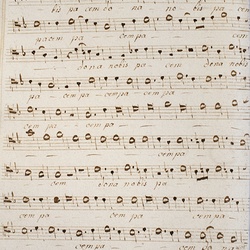 bis pacem do na no bis pa cem
pacem pa cem
dona nobis pa cem dona nobis
pa cem pa cem pa cem pa
cem pa cem pa
cem pa
cem dona nobis pa
cem pa cem pa
cem pa